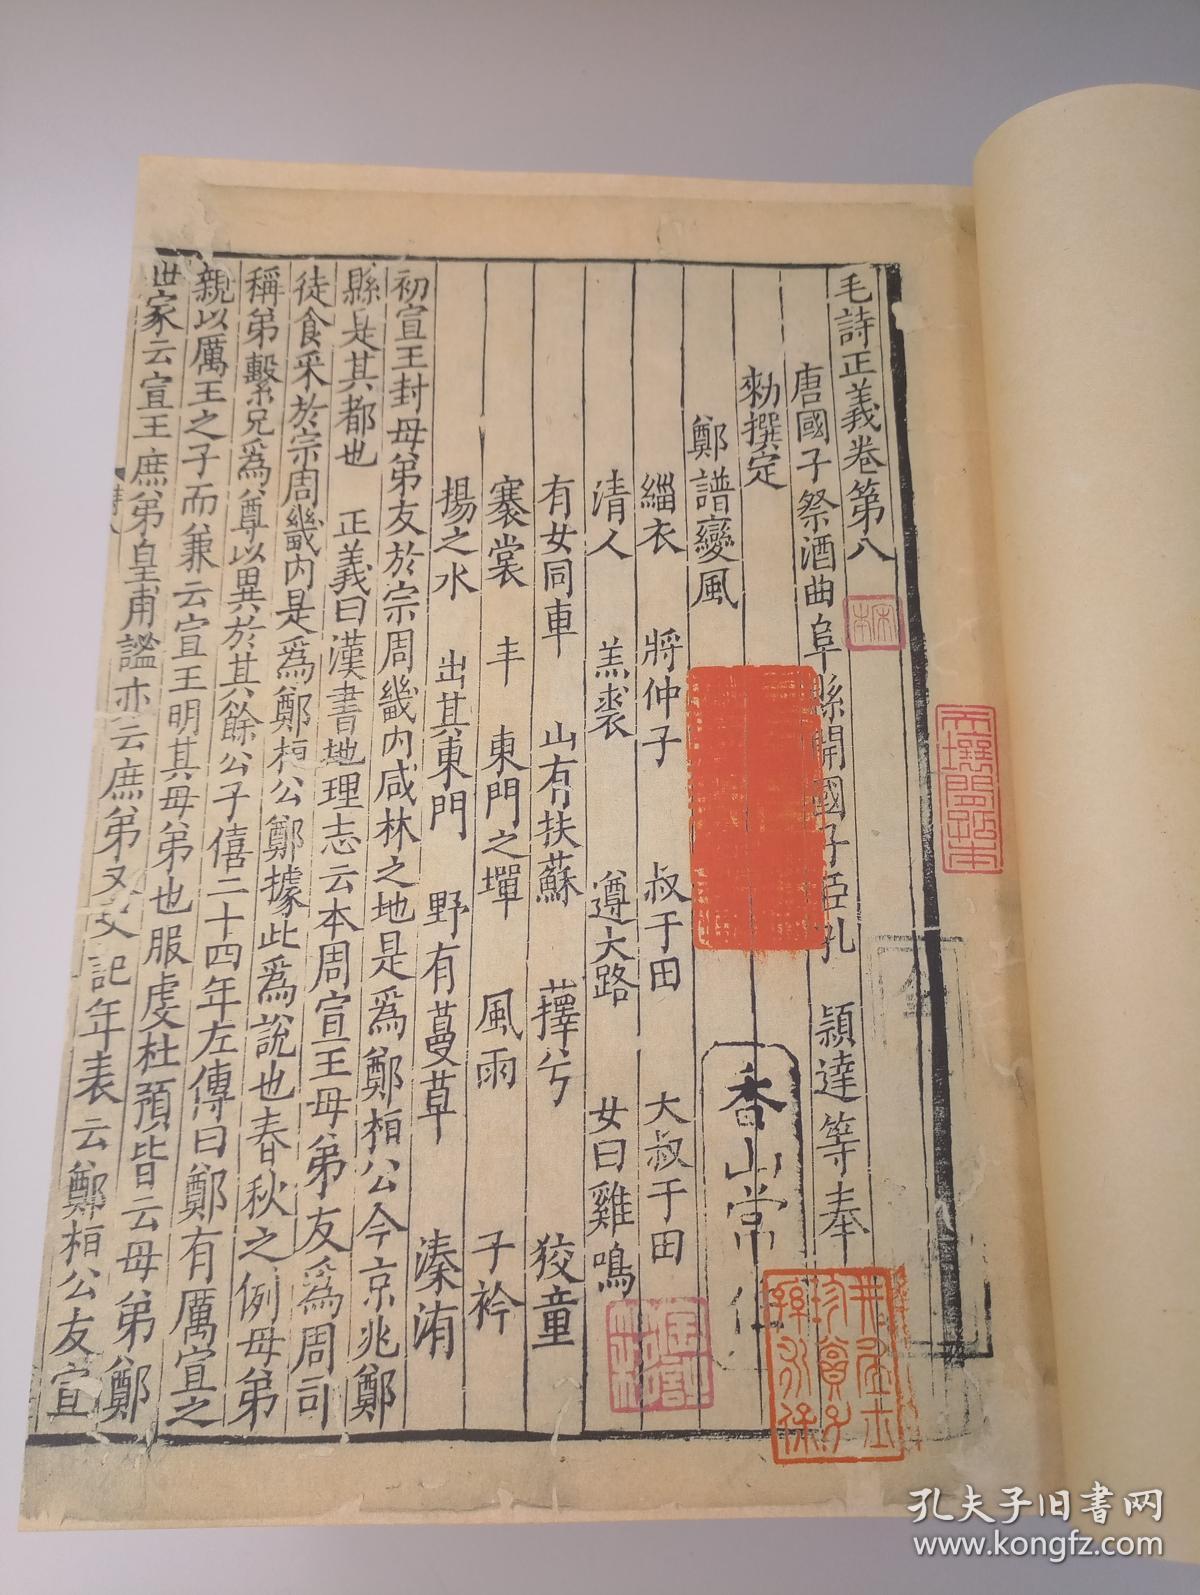 毛詩正義卷第八
唐國子祭酒曲阜縣開國子臣孔 頴達等奉
勑撰定
鄭譜變風
緇衣 將仲子 叔于田 大叔于田
清人 羔裘 遵大路 女曰雞鳴
有女同車 山有扶蘇 蘀兮 狡童
褰裳 丰 東門之墠 風雨 子衿
揚之水 出其東門 野有蔓草 溱洧
初宣王封母弟友於宗周畿内咸林之地是爲鄭桓公今京兆鄭
縣是其都也 正義曰漢書地理志云本周宣王母弟友爲周司
徒食采於宗周畿内是爲鄭桓公鄭據此爲說也春秋之例母弟
稱弟繫兄爲尊以異於其餘公子僖二十四年左傳曰鄭有厲宣之
親以厲王之子而兼云宣王明其母弟也服虔杜預皆云母弟鄭
世家云宣王庶弟皇甫謐亦云庶弟又史記年表云鄭桓公友宣
詩八
宋本
香山常住
金澤文庫
井井居士珍賞子孫永保
孔夫子旧书网
www.kongfz.com